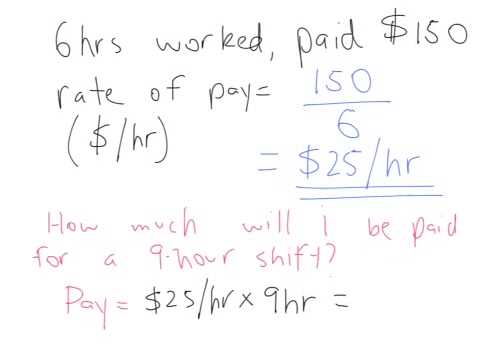 6hrs worked, paid $150
rate of pay = 150/6
($/hr)
= $25/hr
How much will i be paid
for a 9-hour shift?
Pay = $25/hr × 9hr =